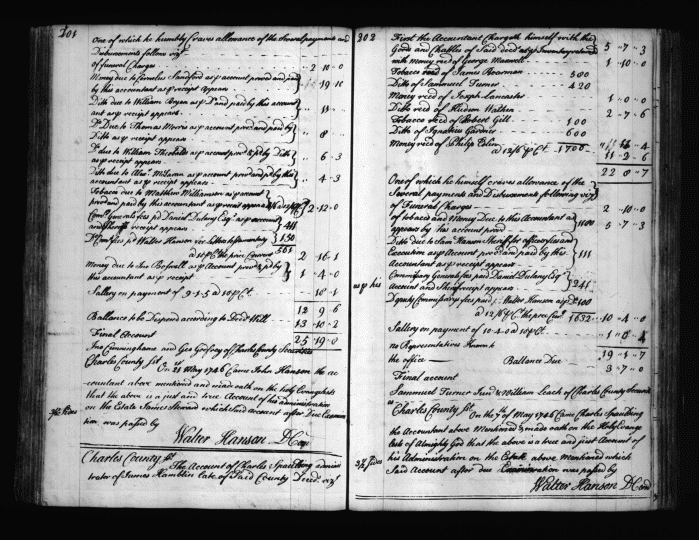 201
One of which he humbly craves allowance of the Several payments and
Disbursements follows vizt
of funeral Charges 2 - 10 - 0
Money due to Cornelius Sandford as pr account proved and paid
by this accountant as pr receipt appears 19 10
Ditto due to William Bryan as pr Do and paid by this account
ant as pr receipt appears 11
Do Due to Thomas Morris as pr account proved and paid by
Ditto as pr receipt appears 8
Do due to William Theobalds as pr account proved & pd by Ditto
as pr receipt appears 6 - 3
Ditto due to Alexr McLaran as pr account proved and pd by this
accountant as pr receipt appears 4 - 3
Tobacco due to Matthew Williamson as pr account
proved and paid by this accountant appears 2 - 12 - 0
Comy Generals fees pd Daniel Dulany Esqr as pr account
and Sheriffs receipt appears 411
Dy Comys fees pd Walter Hanson 150
561
a 10 pr Ct the price Current 2 16 - 1
Money due to Jno Boswell as pr Account proved & pd by
this accountant as pr receipt 1 4 - 0
Sallery on payment of 9 - 1 - 5 a 10 pr Ct 18 - 1
12 9 6
Ballance to be Dispensd according to Deceds Will 13 - 10 - 2
Final Account 25 - 19 - 8
Jno Cunninghame and Geo Godfrey of Charles County Securities
Charles County Sct
On 21 May 1746 Came John Hanson the ac
countant above mentioned and made oath on the holy Evangelists
that the above is a just and true Account of his administration
on the Estate James Steward which Said account after Due Examina
tion was passed by
Walter Hanson D Com
Charles County Sct
The Account of Charles Spaulding adminis
trator of James Hamblin late of Said County Deced vizt
202
First the Accountant Chargeth himself with the
Gods and Chattles of Said deced as pr Inventory 5 - 7 - 3
with money reced of George Maxwell 1 - 10 - 0
Tobacco reced of James Boarman 500
Ditto of Sammuel Turner 420
Money reced of Joseph Lancaster 1 - 0 - 0
Ditto reced of Hudson Wathen 2 - 7 - 6
Tobacco reced of Robert Gill 100
Ditto of Ignatius Gardner 600
Money reced of Philip Edelin
a 12/6 pr Ct 1700 11 - 2 - 6
22 8 - 7
One of which he himself craves allowance of the
Several payments and Disbursement following vizt
of Funeral Charges 2 - 10 - 0
of tobacco and Money Due to this Accountant as
appears by his account proved 5 - 7 - 3
Ditto due to Sam Hanson Sheriff for officers fees and
Execution as pr Account proved and paid by this
Accountant as pr receipt appears 111
Commissary Generals fees paid Daniel Dulany Esqr
Account and Sheriff receipt appears 241
Deputy Commissary fees paid Walter Hanson 100
a 12/6 pr Ct the price Curt 1632 - 10 - 4 - 0
Sallery on payment of 10 - 4 - 0 a 10 pr Ct 1 - 0 - 4
no Representatives known to
the office Ballance Due 19 - 1 - 7
3 - 7 - 0
Final account
Sammuel Turner Junr & William Leach of Charles County Securities
Charles County Sct
On the of May 1746 Came Charles Spaulding
the Accountant above Mentioned & made oath on the Holy Evange
lists of Almighty God that the above is a true and just Account of
his Administration on the Estate above Mentioned which
Said Account after due Examination was passed by
Walter Hanson D Com